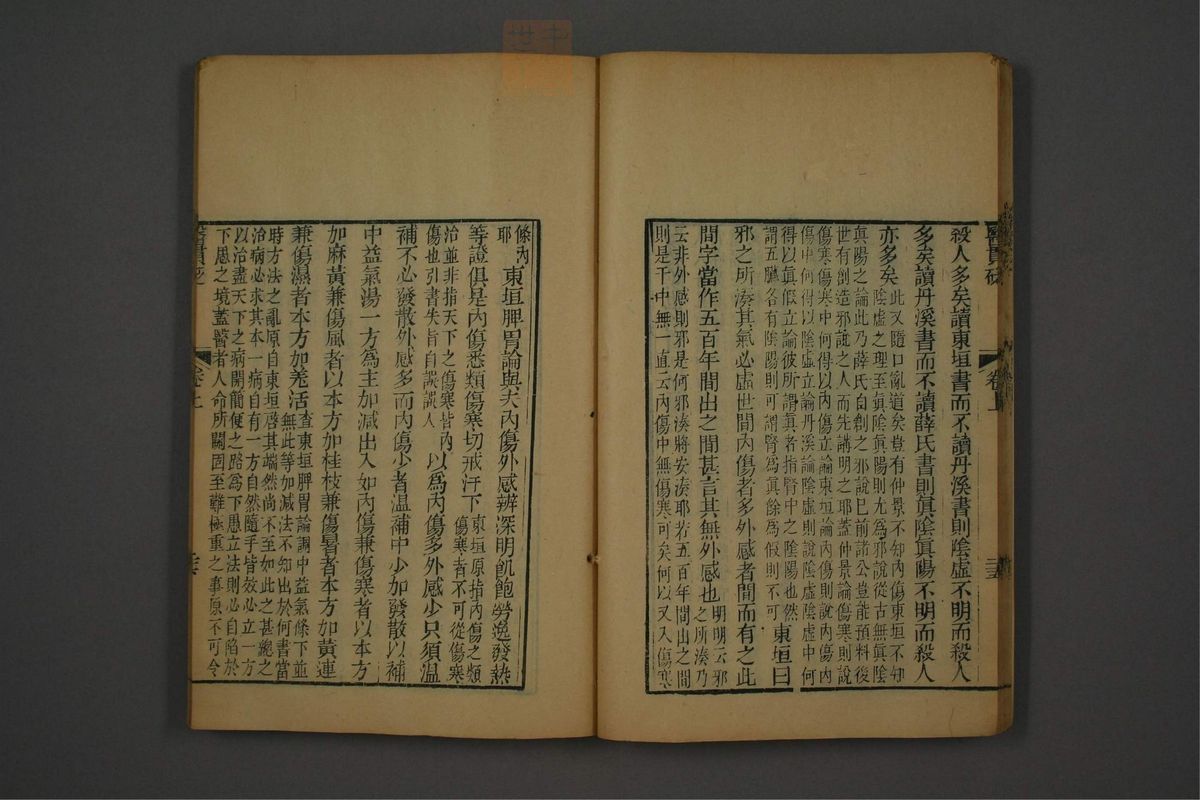 醫貫砭
卷上
殺人多矣讀東垣書而不讀丹溪書則陰虛不明而殺人
多矣讀丹溪書而不讀薛氏書則眞陰眞陽不明而殺人
亦多矣
此又隨口亂道矣豈有仲景不知內傷東垣不知
陰虛之理至眞陰眞陽則尤爲邪說從古無眞陰
眞陽之論此乃薛氏自創之邪說巳前諸公豈能預料後
世有創造邪說之人而先講明之耶蓋仲景論傷寒則說
傷寒傷寒中何得以內傷立論東垣論內傷則說內傷內
傷中何得以陰虛立論丹溪論陰虛則說陰虛陰虛中何
得以眞假立論彼所謂眞者指腎中之陰陽也然
謂五臟各有陰陽則可謂腎爲眞餘爲假則不可
東垣曰
邪之所湊其氣必虛世間內傷者多外感者間而有之此
間字當作五百年間出之間甚言其無外感也
明明云邪
之所湊乃
云非外感則邪是何邪湊將安湊耶若五百年間出之間
則是千中無一直云內傷中無傷寒可矣何以又入傷寒
條內
耶
東垣脾胃論與夫內傷外感辨深明飢飽勞逸發熱
等證俱是內傷悉類傷寒切戒汗下
東垣原指內傷之類
傷寒者不可從傷寒
治並非指天下之傷寒皆內
傷也引書失旨自誤誤人
以爲內傷多外感少只須溫
補不必發散外感多而內傷少者溫補中少加發散以補
中益氣湯一方爲主加減出入如內傷兼傷寒者以本方
加麻黃兼傷風者以本方加桂枝兼傷暑者本方加黃連
兼傷濕者本方加羌活
查東垣脾胃論調中益氣條下並
無此等加減法不知出於何書當
時方法之亂原自東垣啓其端然尚不至如此之甚總之
治病必求其本一病自有一方自然隨手皆效必立一方
以治盡天下之病開簡便之路爲下愚立法則必自陷於
下愚之境蓋醫者人命所關固至難極重之事原不可令
醫貫砭
卷上